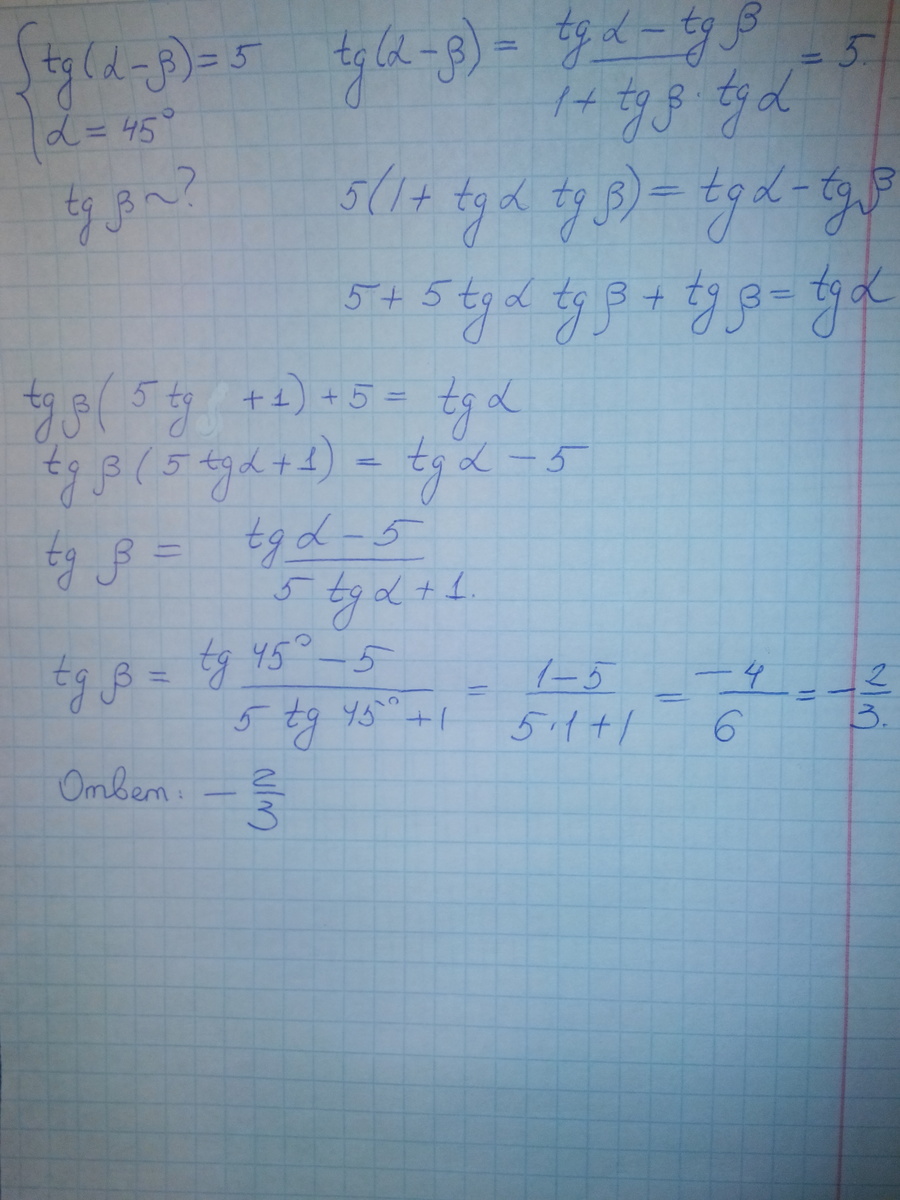 { tg(α-β)=5
α = 45°
tg β ~?
tg(α-β) = (tg α - tg β)/(1 + tg β · tg α) = 5.
5(1 + tg α tg β) = tg α - tg β
5 + 5 tg α tg β + tg β = tg α
tg β ( 5 tg +1) + 5 = tg α
tg β ( 5 tg α + 1) = tg α - 5
tg β = (tg α - 5)/(5 tg α + 1.)
tg β = (tg 45° - 5)/(5 tg 45° + 1) = (1-5)/(5·1+1) = (-4)/6 = -2/3.
Ответ: - 2/3